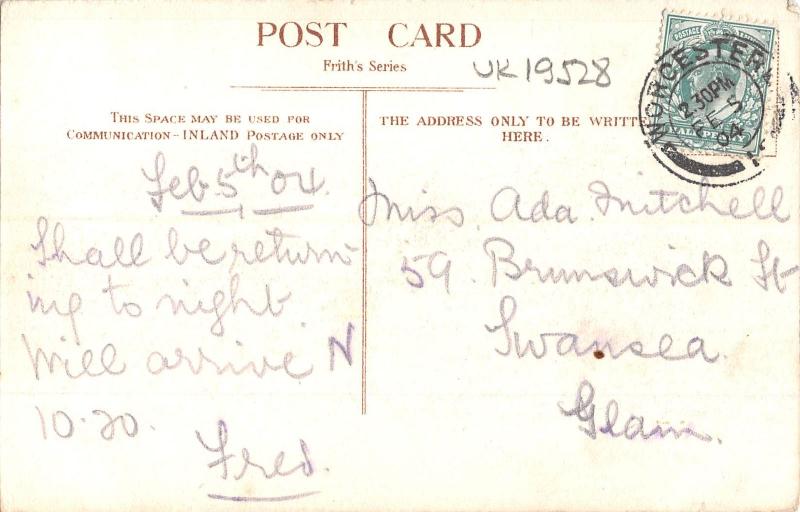 POST CARD
Frith's Series
UK19528
THIS SPACE MAY BE USED FOR
COMMUNICATION - INLAND POSTAGE ONLY
THE ADDRESS ONLY TO BE WRITTE
HERE.
WORCESTER
2.30PM
FE 5
04
POSTAGE
HALFPENNY
Feb 5th 04.
Shall be return-
ing to night
Will arrive N
10.20.
Fred.
Miss. Ada. Mitchell
59. Brunswick St
Swansea.
Glam.